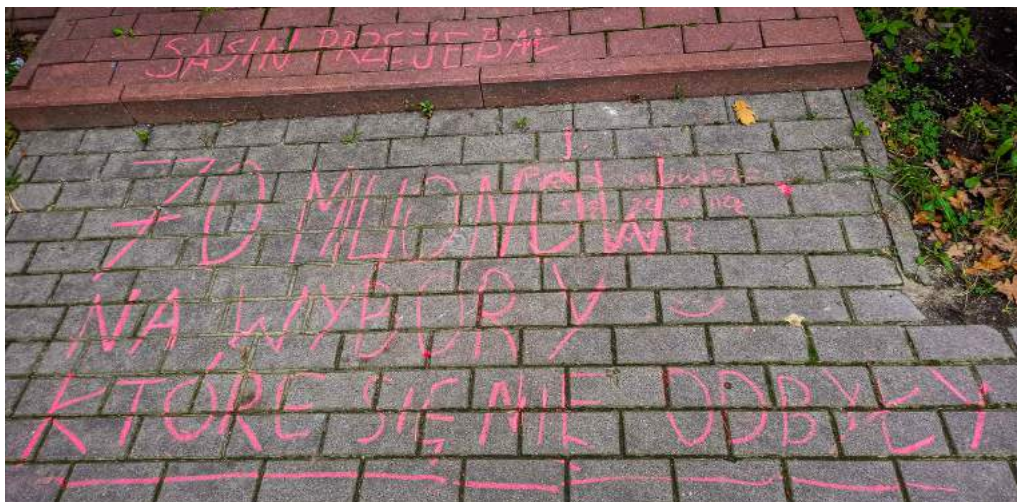 SASIN PRZEJEBAŁ
70 MILIONÓW
NA WYBORY
KTÓRE SIĘ NIE ODBYŁY